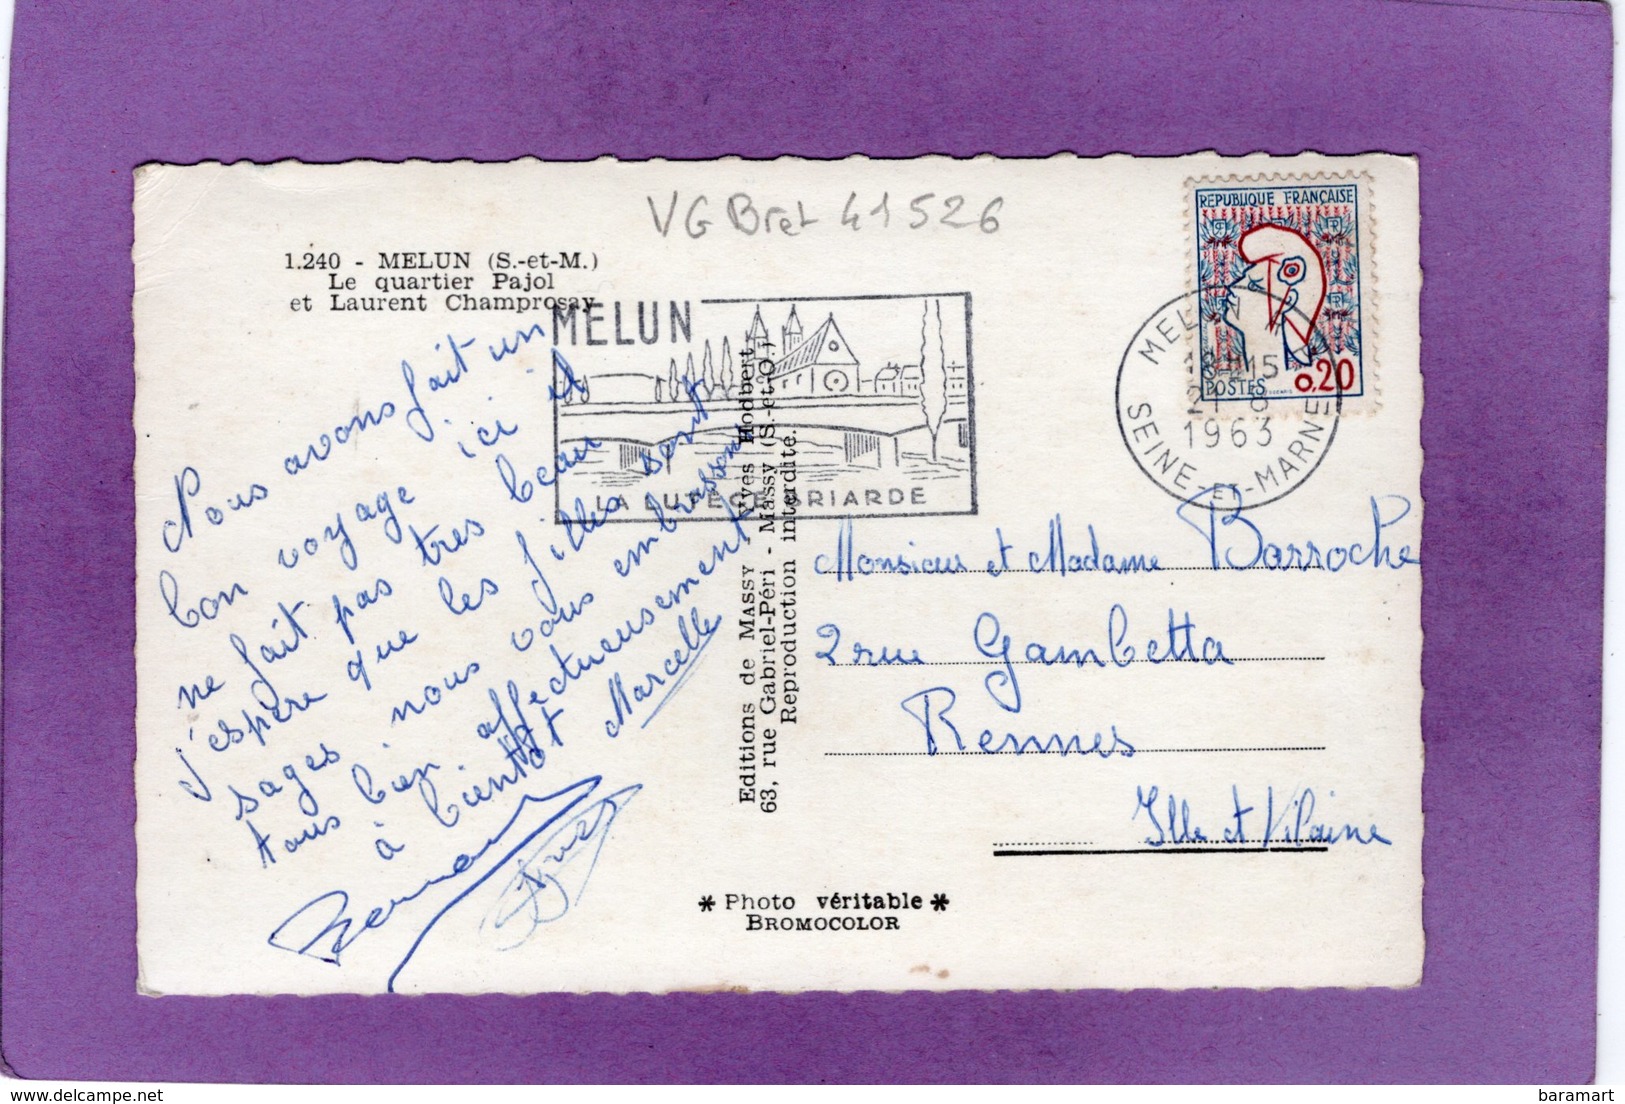 VG Bret 41526
1.240 - MELUN (S.-et-M.)
Le quartier Pajol
et Laurent Champrosay
MELUN
LA LUTECE BRIARDE
REPUBLIQUE FRANÇAISE
POSTES 0,20
MELUN
18H15
21-8
1963
SEINE-ET-MARNE
Nous avons fait un
bon voyage ici il
ne fait pas très beau
j'espère que les filles sont
sages nous vous embrassons
tous bien affectueusement
à bientôt Marcelle
Editions de MASSY - Yves Hodbert,
63, rue Gabriel-Péri - Massy (S.-et-O.)
Reproduction interdite.
Monsieur et Madame Barroche
2 rue Gambetta
Rennes
Ille et Vilaine
* Photo véritable *
BROMOCOLOR
baramart